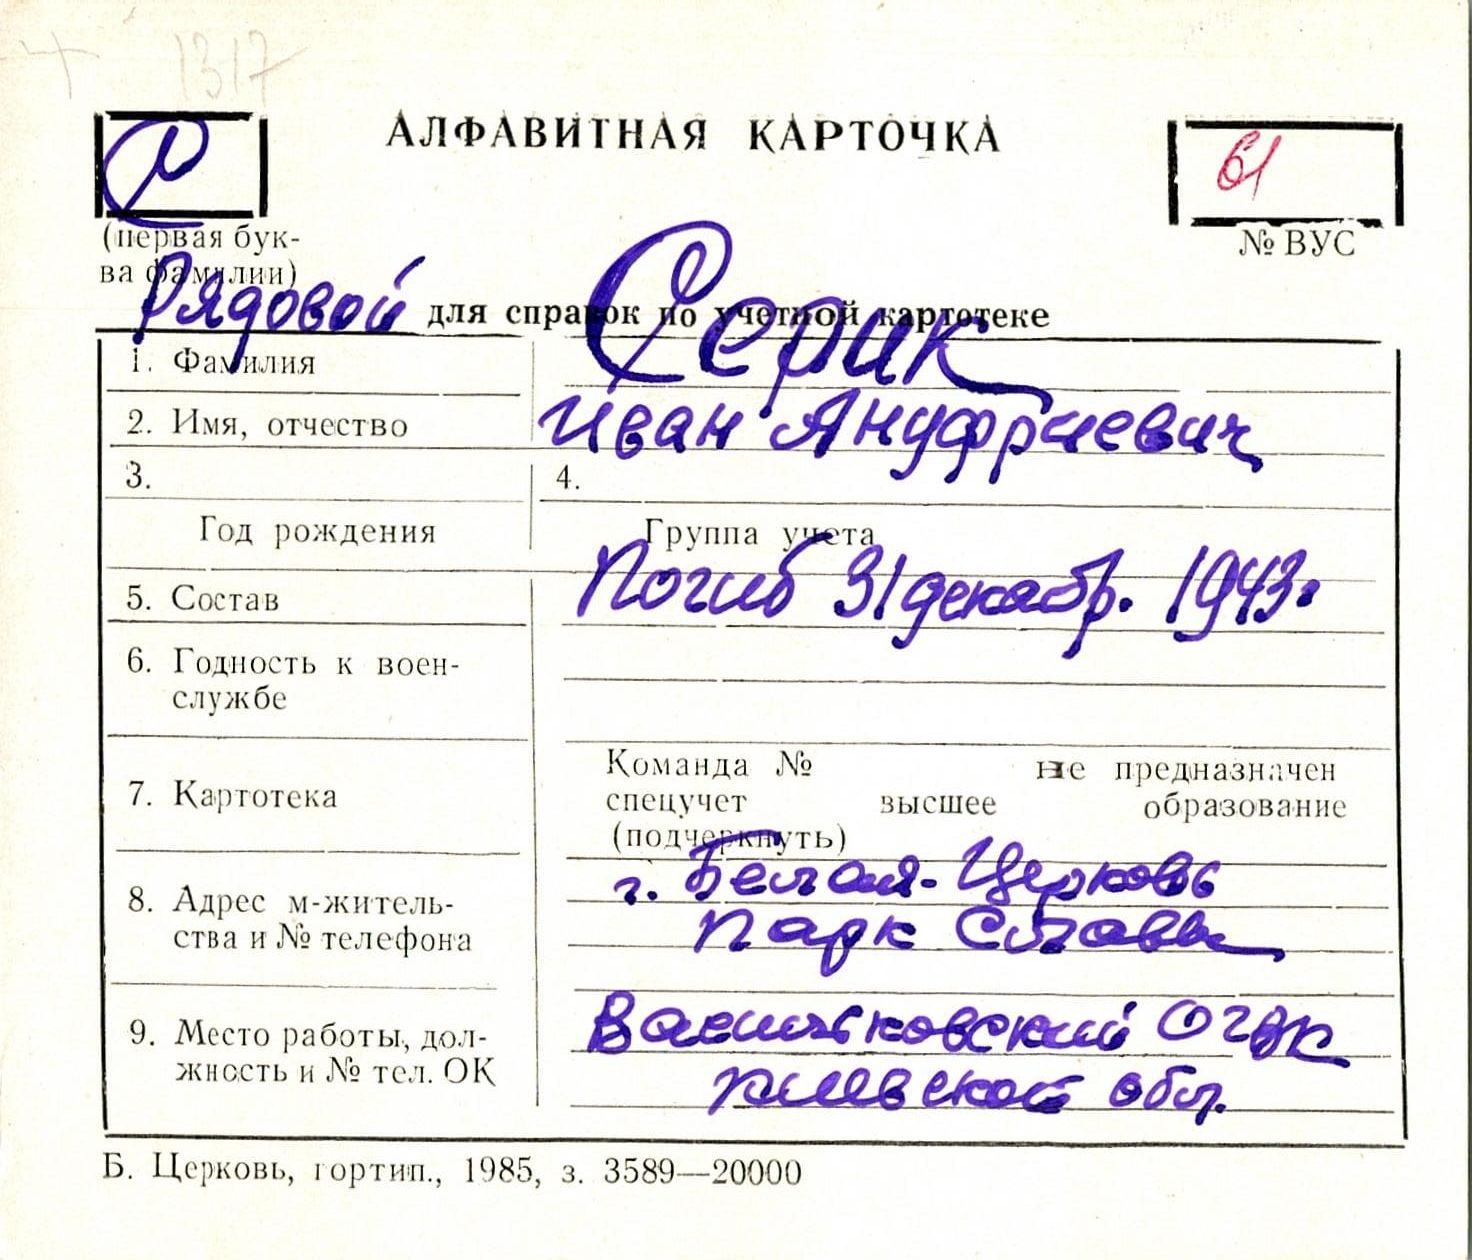 1317
АЛФАВИТНАЯ КАРТОЧКА
61
(первая бук-
ва фамилии)
№ ВУС
Рядовой для справок по учетной картотеке
1. Фамилия Серик
2. Имя, отчество Иван Ануфриевич
3. 4.
Год рождения Группа учета
5. Состав Погиб 31 декабр. 1943г.
6. Годность к воен-
службе
Команда № не предназначен
7. Картотека спецучет высшее образование
(подчеркнуть)
8. Адрес м-житель-
ства и № телефона
г. Белая-Церковь
парк Славы
9. Место работы, дол-
жность и № тел. ОК
Васильковский ОГВК
Киевской обл.
Б. Церковь, гортип., 1985, з. 3589—20000